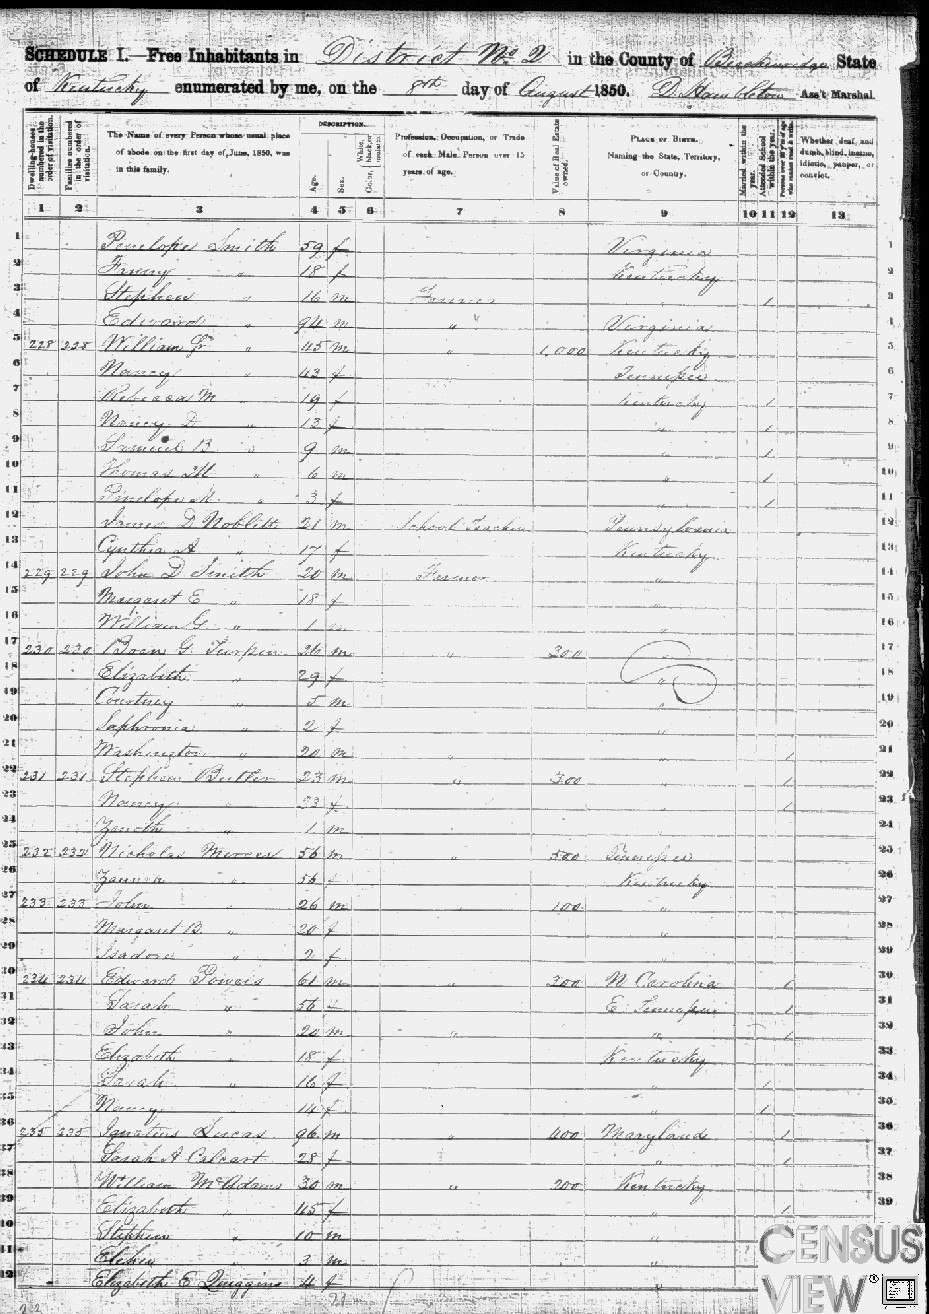 SCHEDULE I.—Free Inhabitants in District No. 2 in the County of Breckenridge State
of Kentucky enumerated by me, on the 8th day of August 1850. D. Hambleton Ass't Marshal.
Dwelling-houses numbered in the order of visitation.
Families numbered in the order of visitation.
The Name of every Person whose usual place of abode on the first day of June, 1850, was in this family.
DESCRIPTION.
Age.
Sex.
Color, White, black, or mulatto.
Profession, Occupation, or Trade of each Male Person over 15 years of age.
Value of Real Estate owned.
PLACE OF BIRTH. Naming the State, Territory, or Country.
Married within the year.
Attended School within the year.
Persons over 20 y'rs of age who cannot read & write.
Whether deaf, and dumb, blind, insane, idiotic, pauper, or convict.
1 2 3 4 5 6 7 8 9 10 11 12 13
1 Penelope Smith 59 f Virginia 1
2 " 18 f Kentucky 2
3 Stephen " 16 m Farmer " 1 3
4 Edward " 94 m " Virginia 4
5 228 228 William " 45 m " 1,000 Kentucky 5
6 Nancy " 43 f Tennessee 6
7 Rebecca M " 19 f Kentucky 1 7
8 Nancy D " 13 f " 1 8
9 Samuel B " 9 m " 1 9
10 Thomas M " 6 m " 1 10
11 Penelope M. " 3 f " 1 11
12 James D Noblitt 21 m School Teacher Pennsylvania 12
13 Cynthia A " 17 f Kentucky 13
14 229 229 John D Smith 20 m Farmer " 14
15 Margaret E " 18 f " 15
16 William G. " 1 m " 16
17 230 230 G. Turpin 26 m " 300 " 17
18 Elizabeth " 29 f " 18
19 Courtney " 5 m " 19
20 Saphronia " 2 f " 20
21 Washington " 20 m " " 1 21
22 231 231 Stephen Butler 23 m " 300 " 1 22
23 Nancy " 23 f " 1 23
24 " 1 m " 24
25 232 232 Nicholas Mercer 56 m " 500 Tennessee 25
26 " 56 f Kentucky 26
27 233 233 John " 26 m " 100 " 27
28 Margaret B. " 20 f " 28
29 Isadore " 2 f " 29
30 234 234 Edward Powers 61 m " 300 N Carolina 1 30
31 Sarah " 56 f E Tennessee 1 31
32 John " 20 m " " 1 32
33 Elizabeth " 18 f Kentucky 33
34 Sarah " 16 f " 1 34
35 Nancy " 14 f " 1 35
36 235 235 Ignatius Lucas 96 m " 400 Maryland 1 36
37 Sarah A Calvart 28 f " 1 37
38 William McAdams 30 m " 200 Kentucky 38
39 Elizabeth " 45 f " 1 39
40 Stephen " 10 m "
41 " 3 m "
42 Elizabeth E Quiggins 4 f "
CENSUS VIEW®